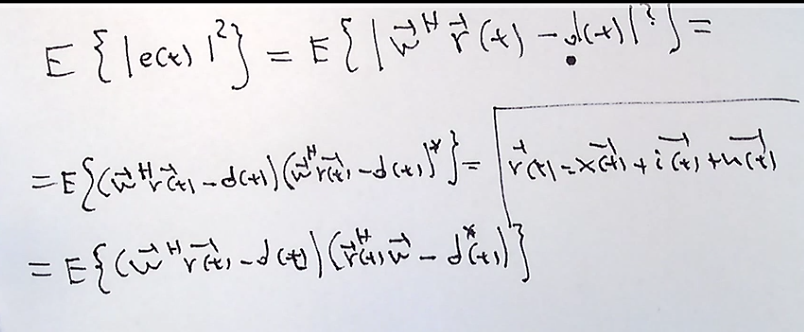 E{|e(t)|²} = E{|w⃗ᴴ r⃗(t) − d(t)|²} =
= E{(w⃗ᴴ r⃗(t) − d(t))(w⃗ᴴ r⃗(t) − d(t))*} = r⃗(t) = x⃗(t) + i⃗(t) + n⃗(t)
= E{(w⃗ᴴ r⃗(t) − d(t))(r⃗ᴴ(t) w⃗ − d*(t))}